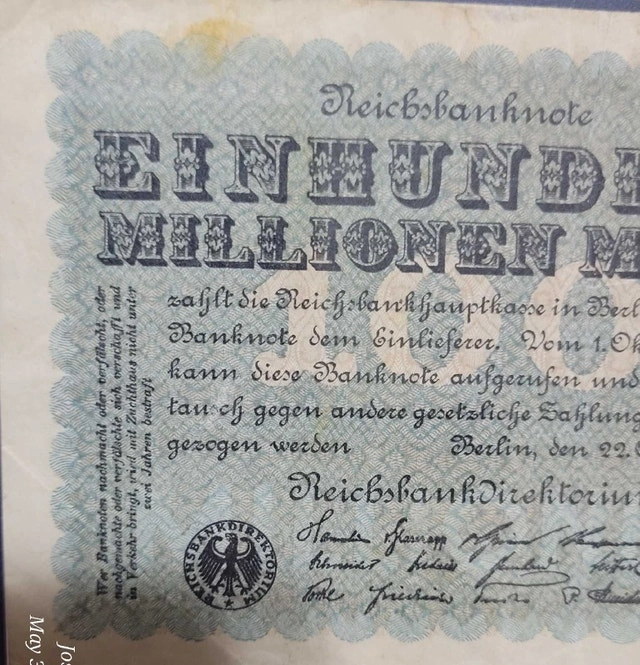 Reichsbanknote
EINHUNDE
MILLIONEN M
zahlt die Reichsbankhauptkasse in Berl
Banknote dem Einlieferer. Vom 1. Ok
kann diese Banknote aufgerufen und
tausch gegen andere gesetzliche Zahlung
gezogen werden Berlin, den 22.
Reichsbankdirektoriu
100
Wer Banknoten nachmacht oder verfälscht, oder
nachgemachte oder verfälschte sich verschafft und
in Verkehr bringt, wird mit Zuchthaus nicht unter
zwei Jahren bestraft
REICHSBANKDIREKTORIUM
Jos
May 3